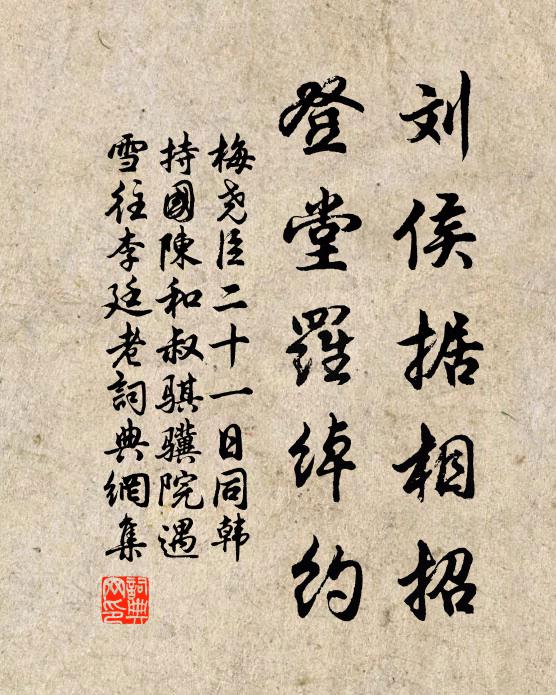 刘侯据相招
登堂羅绰约
梅尧臣二十一日同韩
持國陳和叔骐骥院遇
雪往李廷老詞典網集
詞典
网印